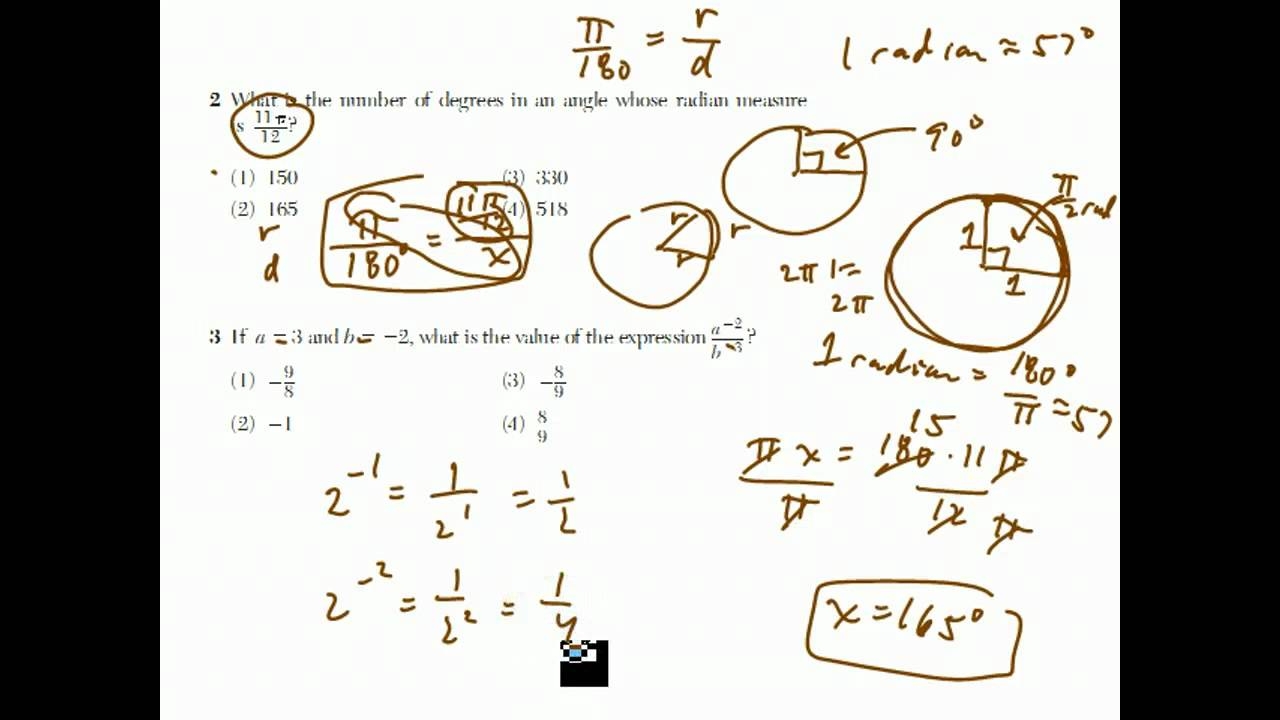 π/180 = r/d
1 radian ≈ 57°
2 What is the number of degrees in an angle whose radian measure
is 11π/12?
(1) 150 (3) 330
(2) 165 (4) 518
r
d
π/180° = 11π/12/x
90°
r r
r
π/2 rad
1
1
2π 1 =
2π
1 radian = 180°/π ≈ 57
3 If a = 3 and b = −2, what is the value of the expression a⁻²/b⁻³?
(1) −9/8 (3) −8/9
(2) −1 (4) 8/9
2⁻¹ = 1/2¹ = 1/2
2⁻² = 1/2² = 1/4
15
π x = 180 · 11 π
π 12 π
x = 165°